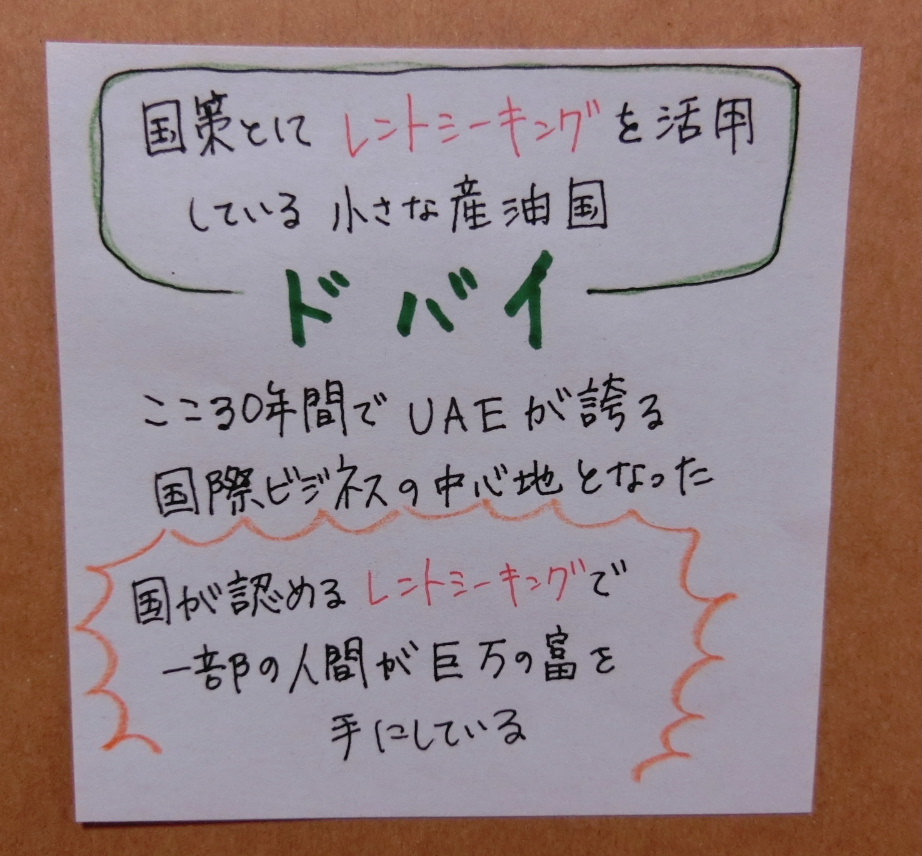 国策とにレントシーキングを活用
している 小さな産油国
ドバイ
ここ30年間で UAEが誇る
国際ビジネスの中心地となった
国が認めるレントシーキングで
一部の人間が巨万の富を
手にしている